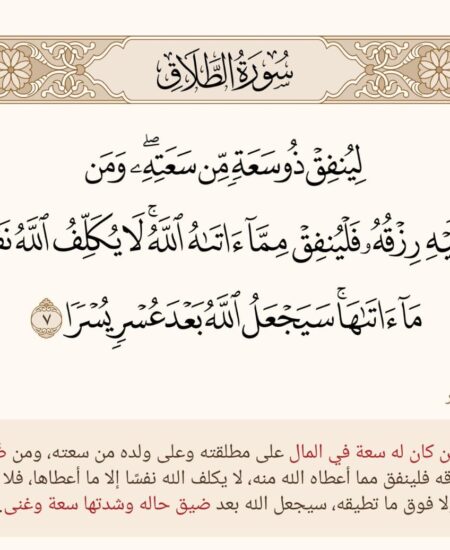 سُورَةُ الطَّلَاقِ
لِيُنفِقْ ذُو سَعَةٍ مِّن سَعَتِهِۦۖ وَمَن
رِزْقُهُۥ فَلْيُنفِقْ مِمَّآ ءَاتَىٰهُ ٱللَّهُۚ لَا يُكَلِّفُ ٱللَّهُ
مَآ ءَاتَىٰهَاۚ سَيَجْعَلُ ٱللَّهُ بَعْدَ عُسْرٍ يُسْرًا ٧
كان له سعة في المال على مطلقته وعلى ولده من سعته، ومن
فلينفق مما أعطاه الله منه، لا يكلف الله نفسًا إلا ما أعطاها، فلا
فوق ما تطيقه، سيجعل الله بعد ضيق حاله وشدتها سعة وغنى.